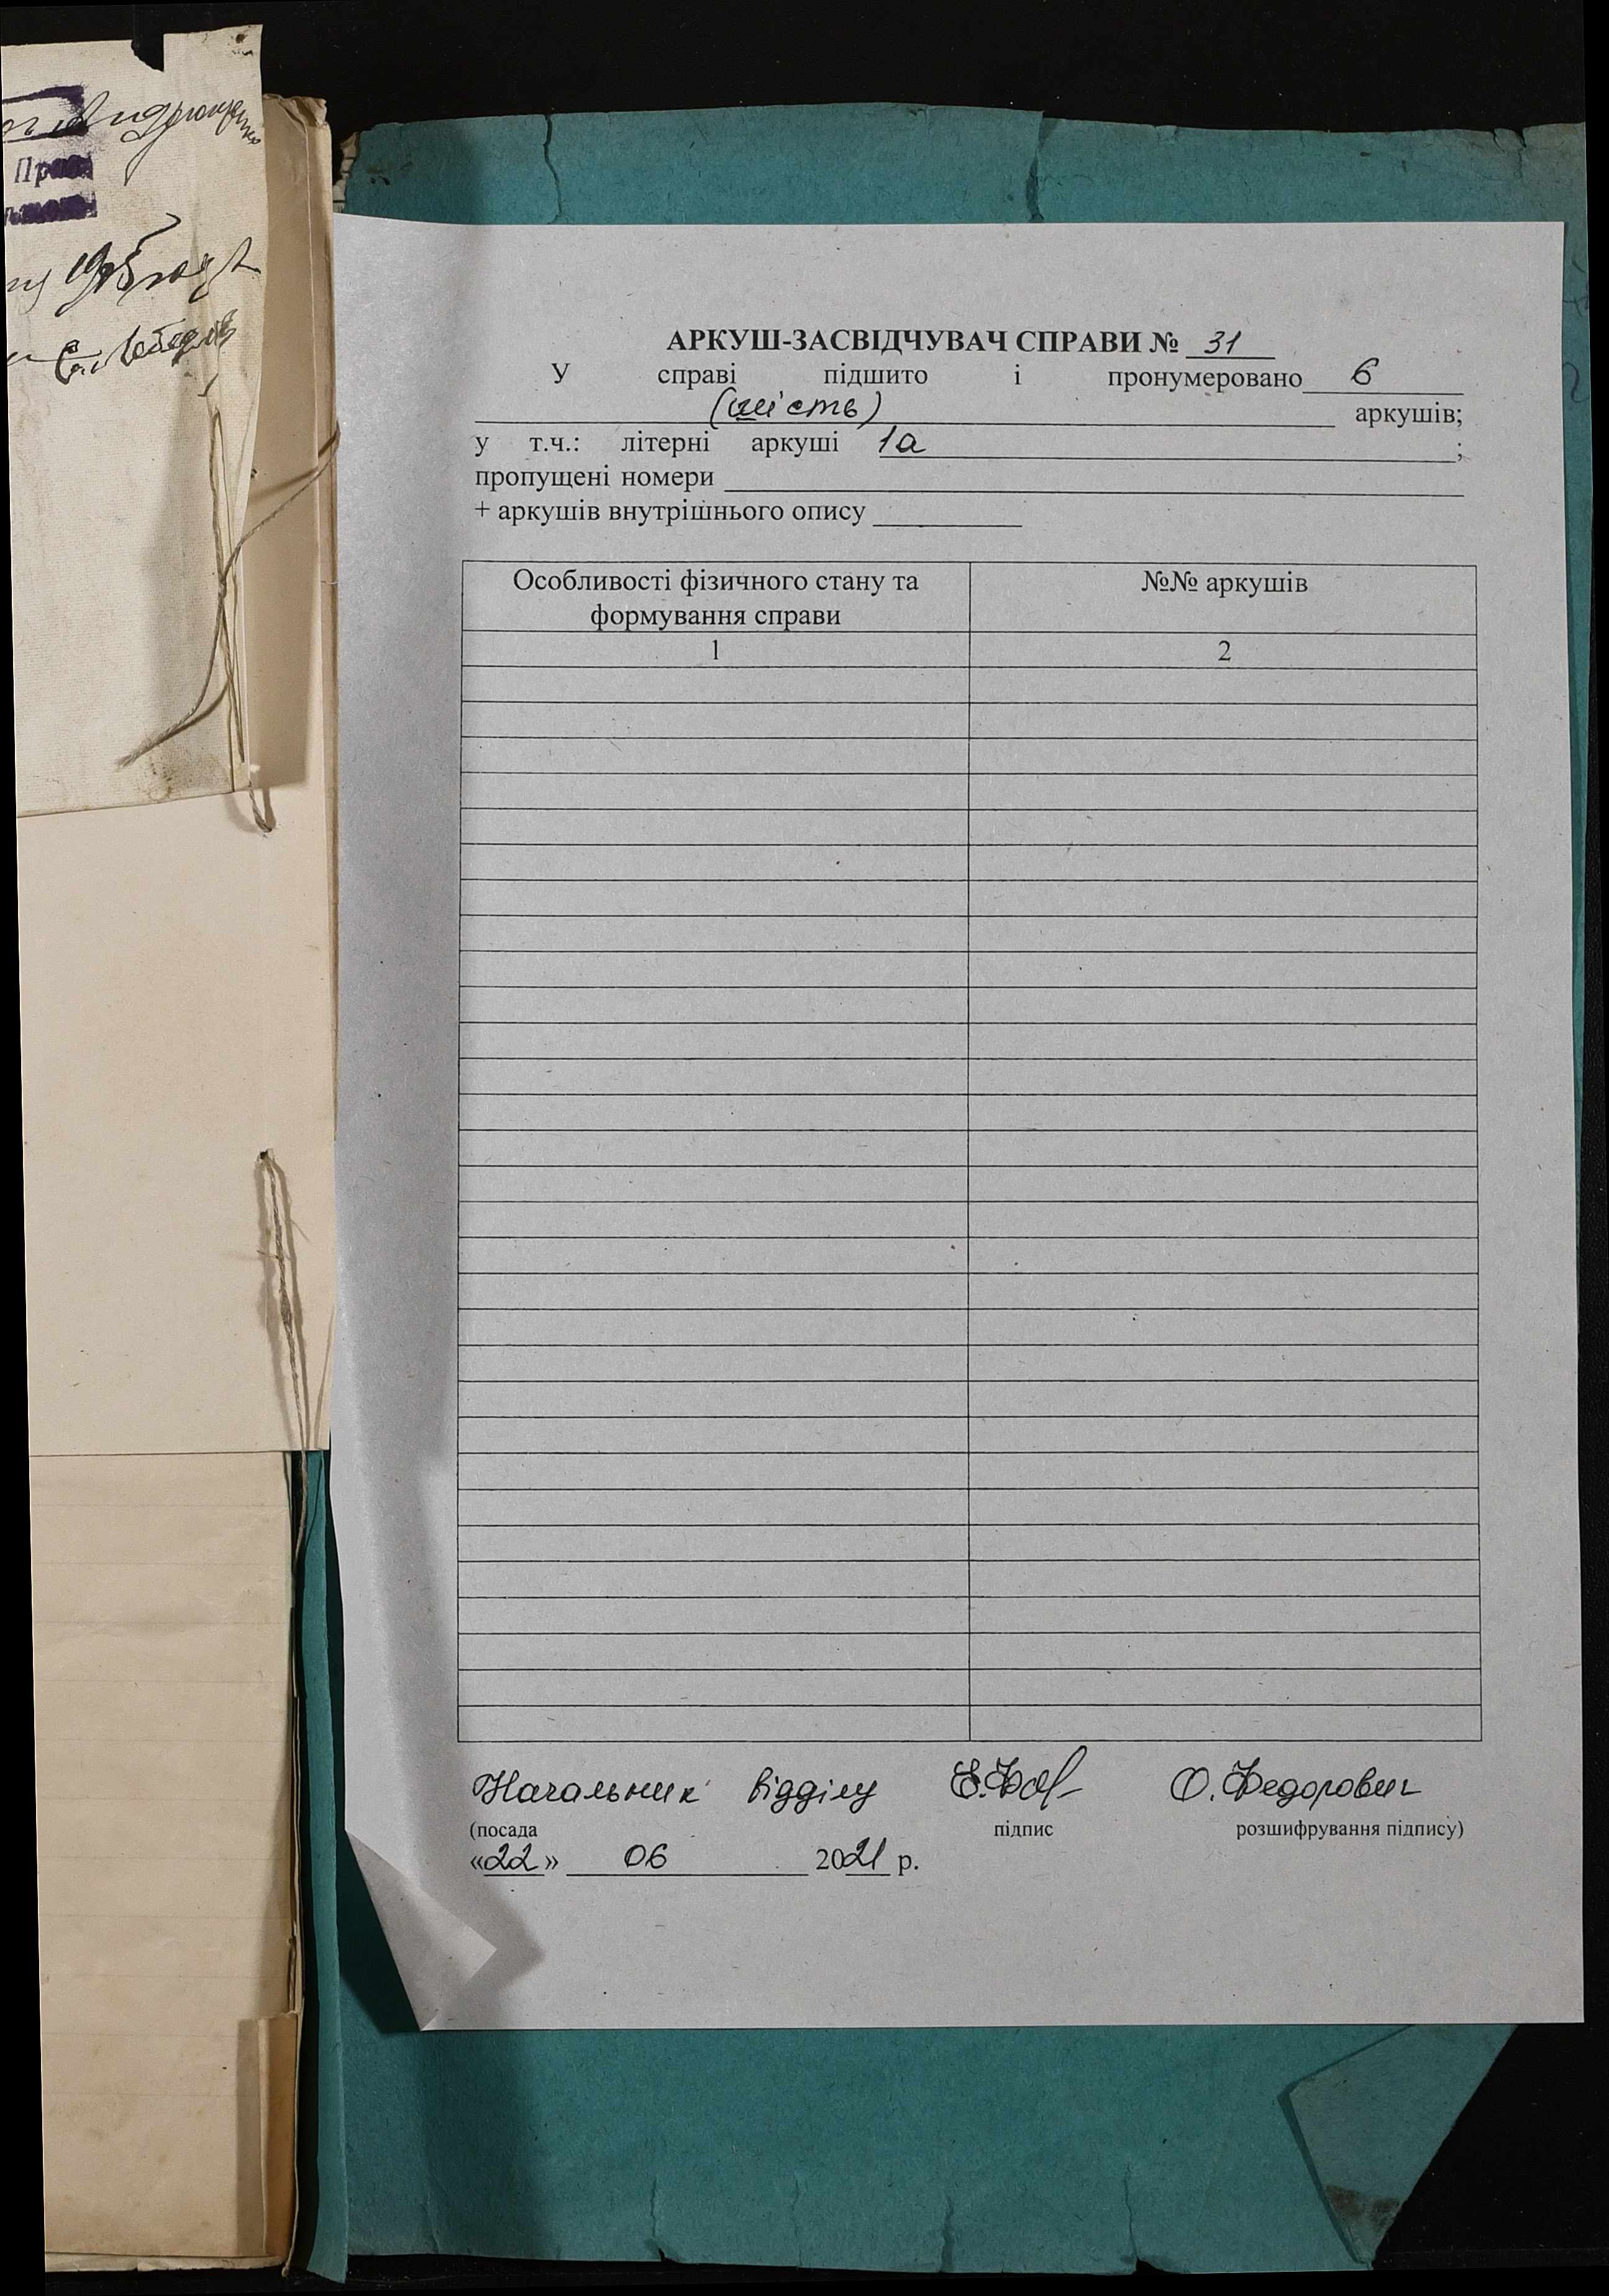 Прав
АРКУШ-ЗАСВІДЧУВАЧ СПРАВИ № 31
У справі підшито і пронумеровано 6
(шість) аркушів;
у т.ч.: літерні аркуші 1а ;
пропущені номери
+ аркушів внутрішнього опису
Особливості фізичного стану та формування справи
№№ аркушів
1
2
Начальник відділу О. Федорович
(посада підпис розшифрування підпису)
«22» 06 2021 р.